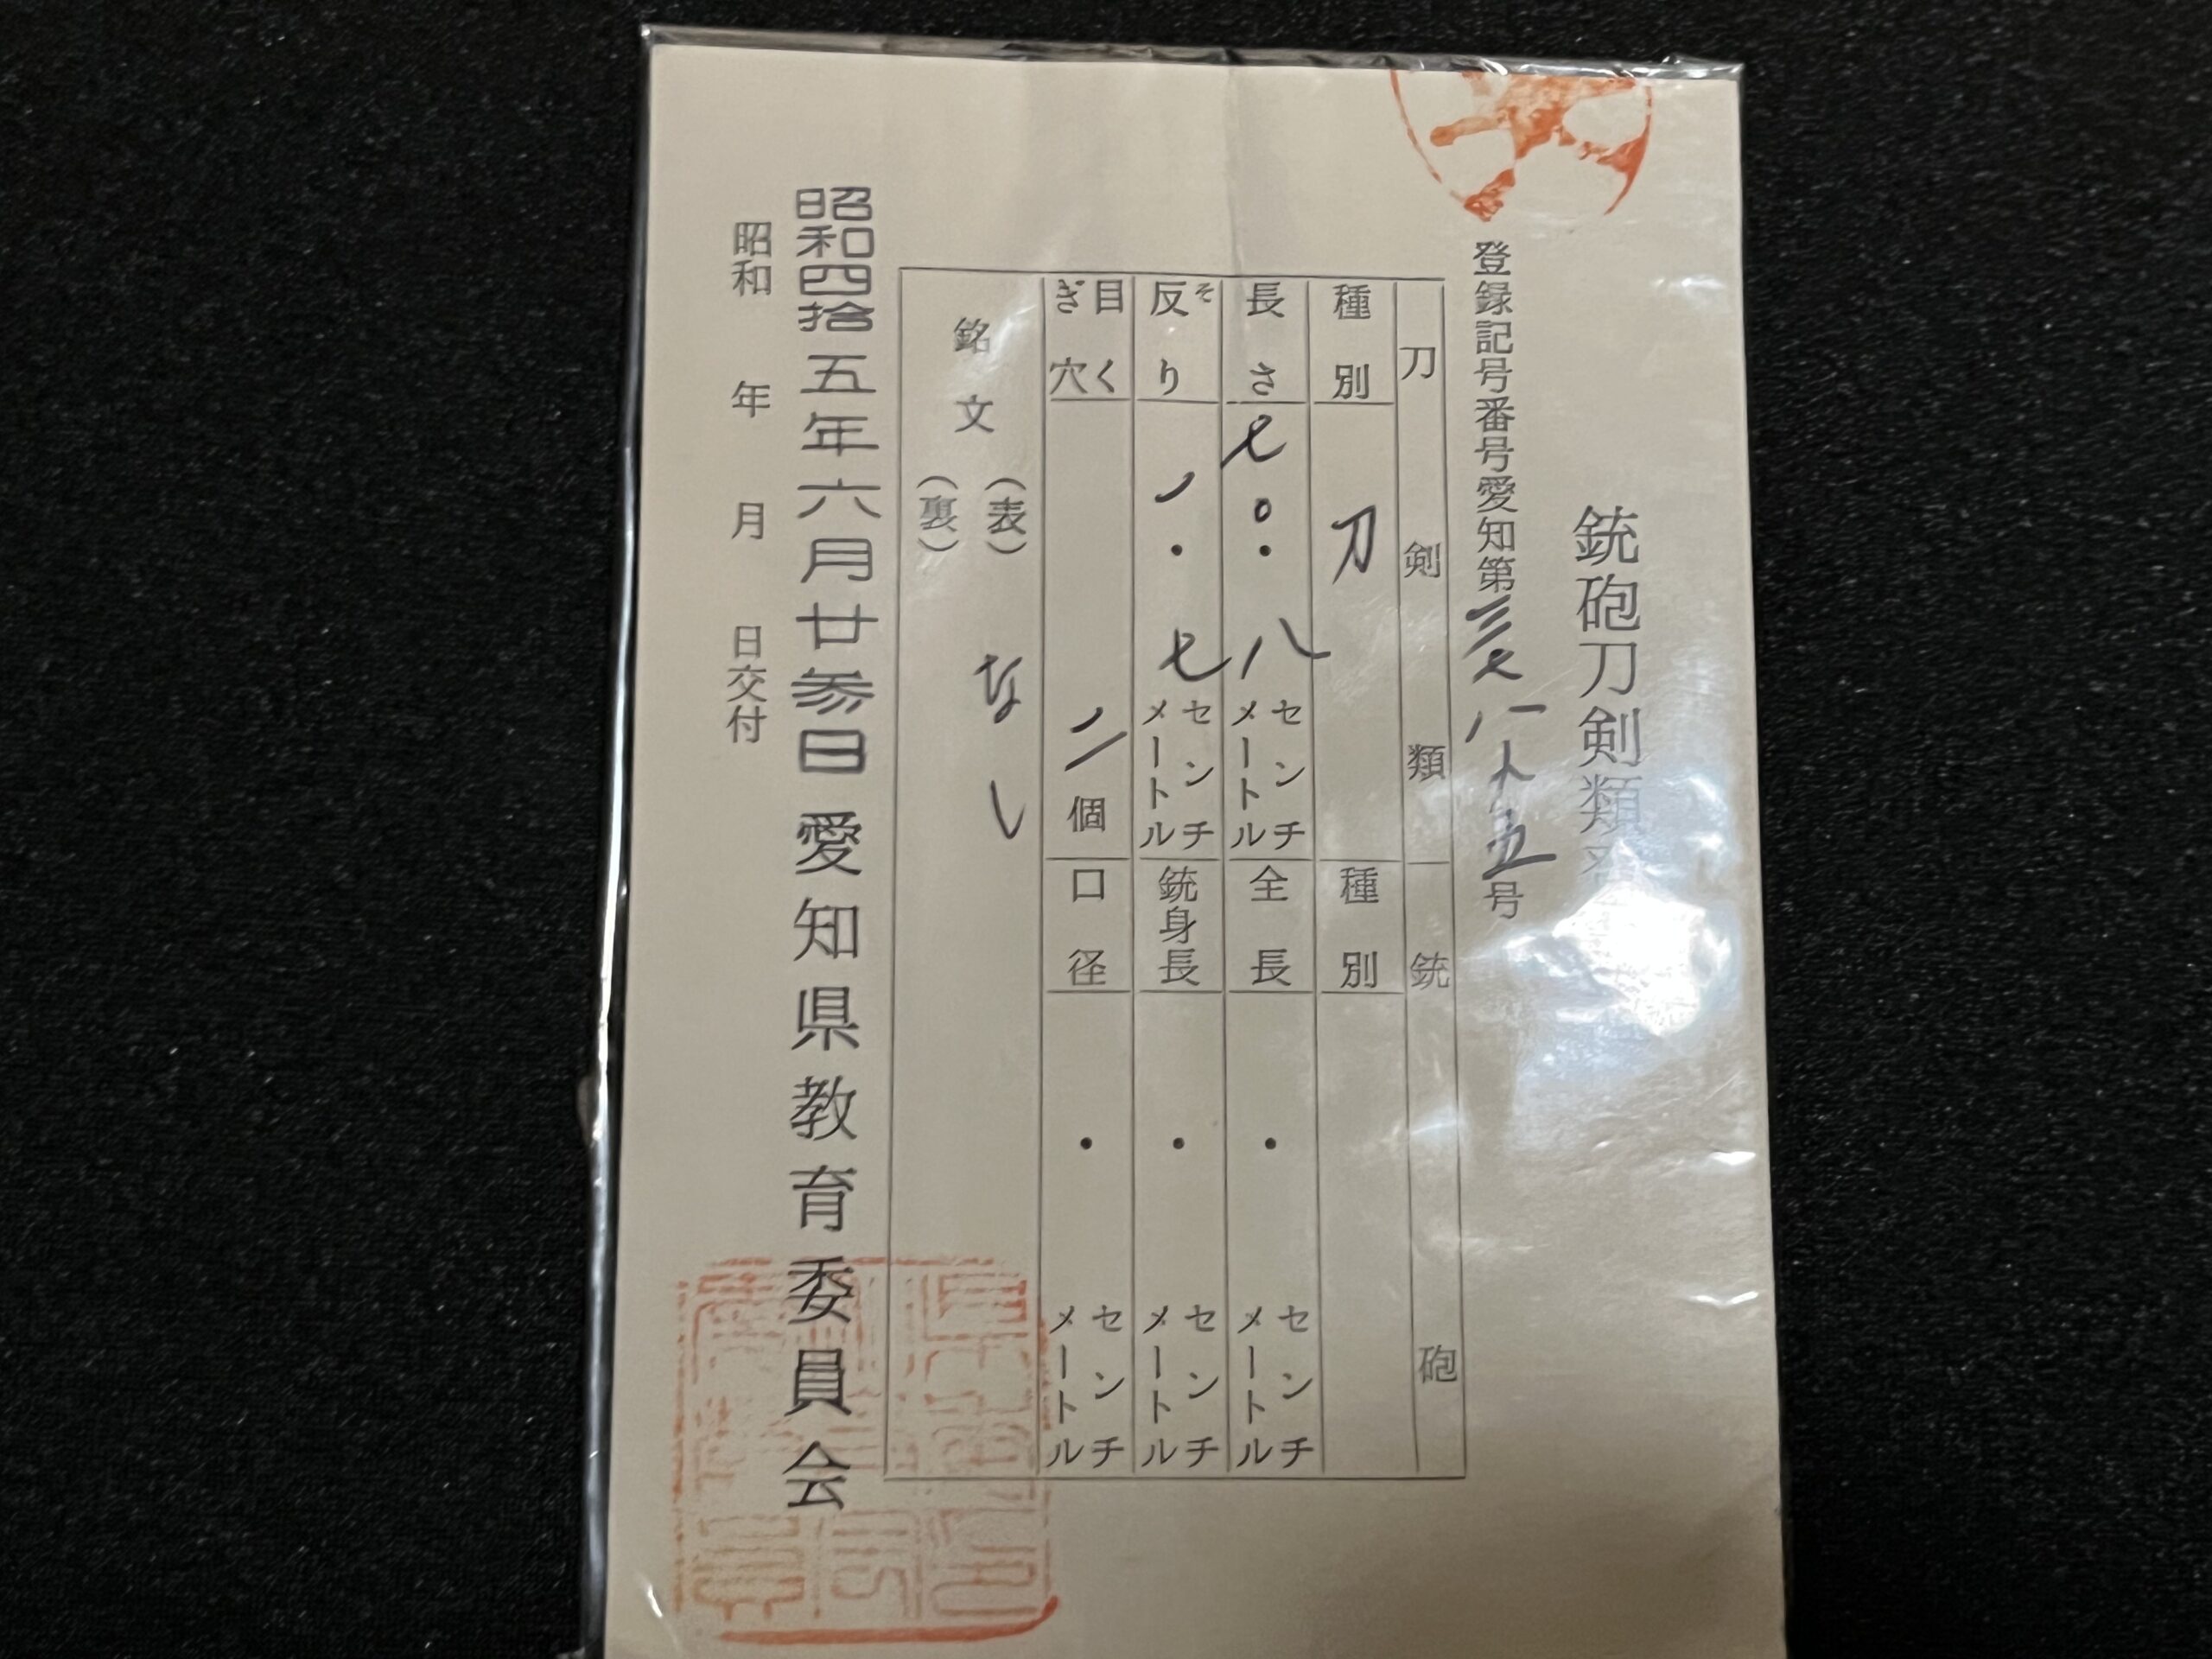 銃砲刀剣類
登録記号番号愛知第
号
刀剣類
種別 刀
長さ 七〇・八 センチメートル
反り 一・七 センチメートル
目くぎ穴 二個
銘文 (表) なし
(裏)
銃砲
種別
全長 ・ センチメートル
銃身長 ・ センチメートル
口径 ・ センチメートル
昭和四拾五年六月廿参日 愛知県教育委員会
昭和 年 月 日交付